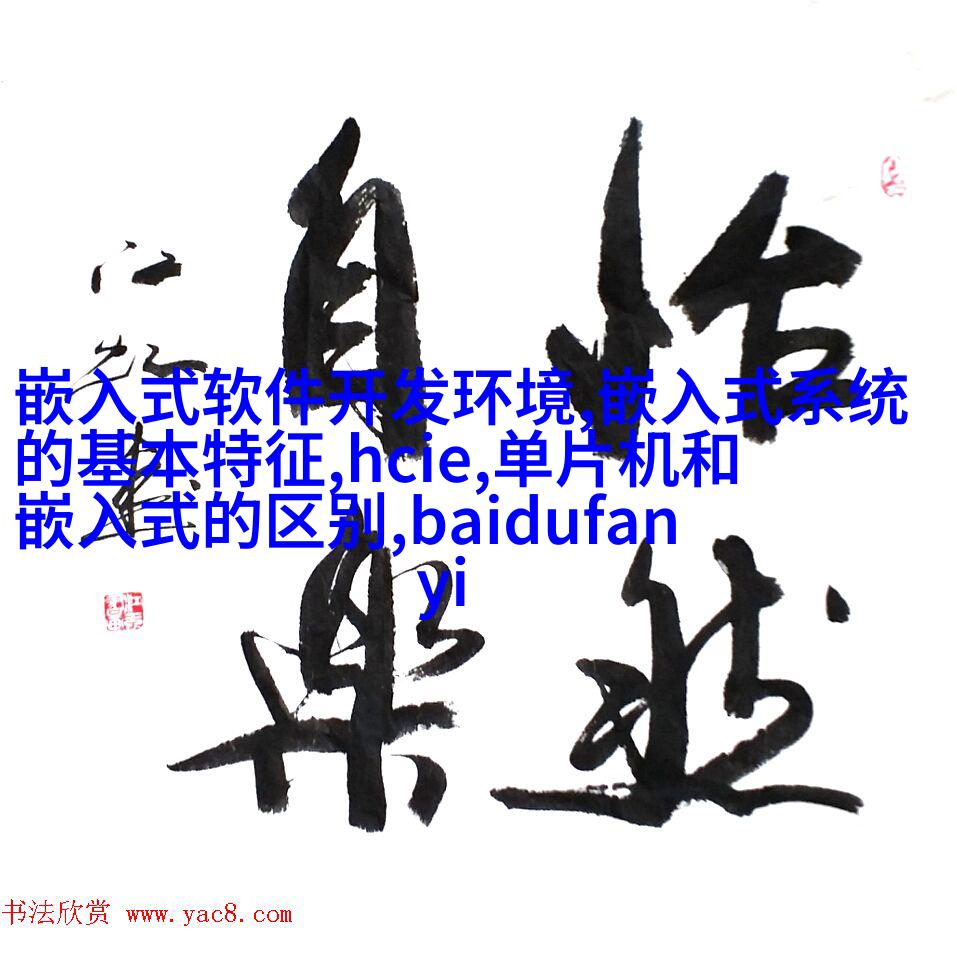 怡然
自樂
嵌入式软件开发环境,嵌入式系统
的基本特征,hcie,单片机和
嵌入式的区别,baidufan
yi
书法欣赏 www.yac8.com